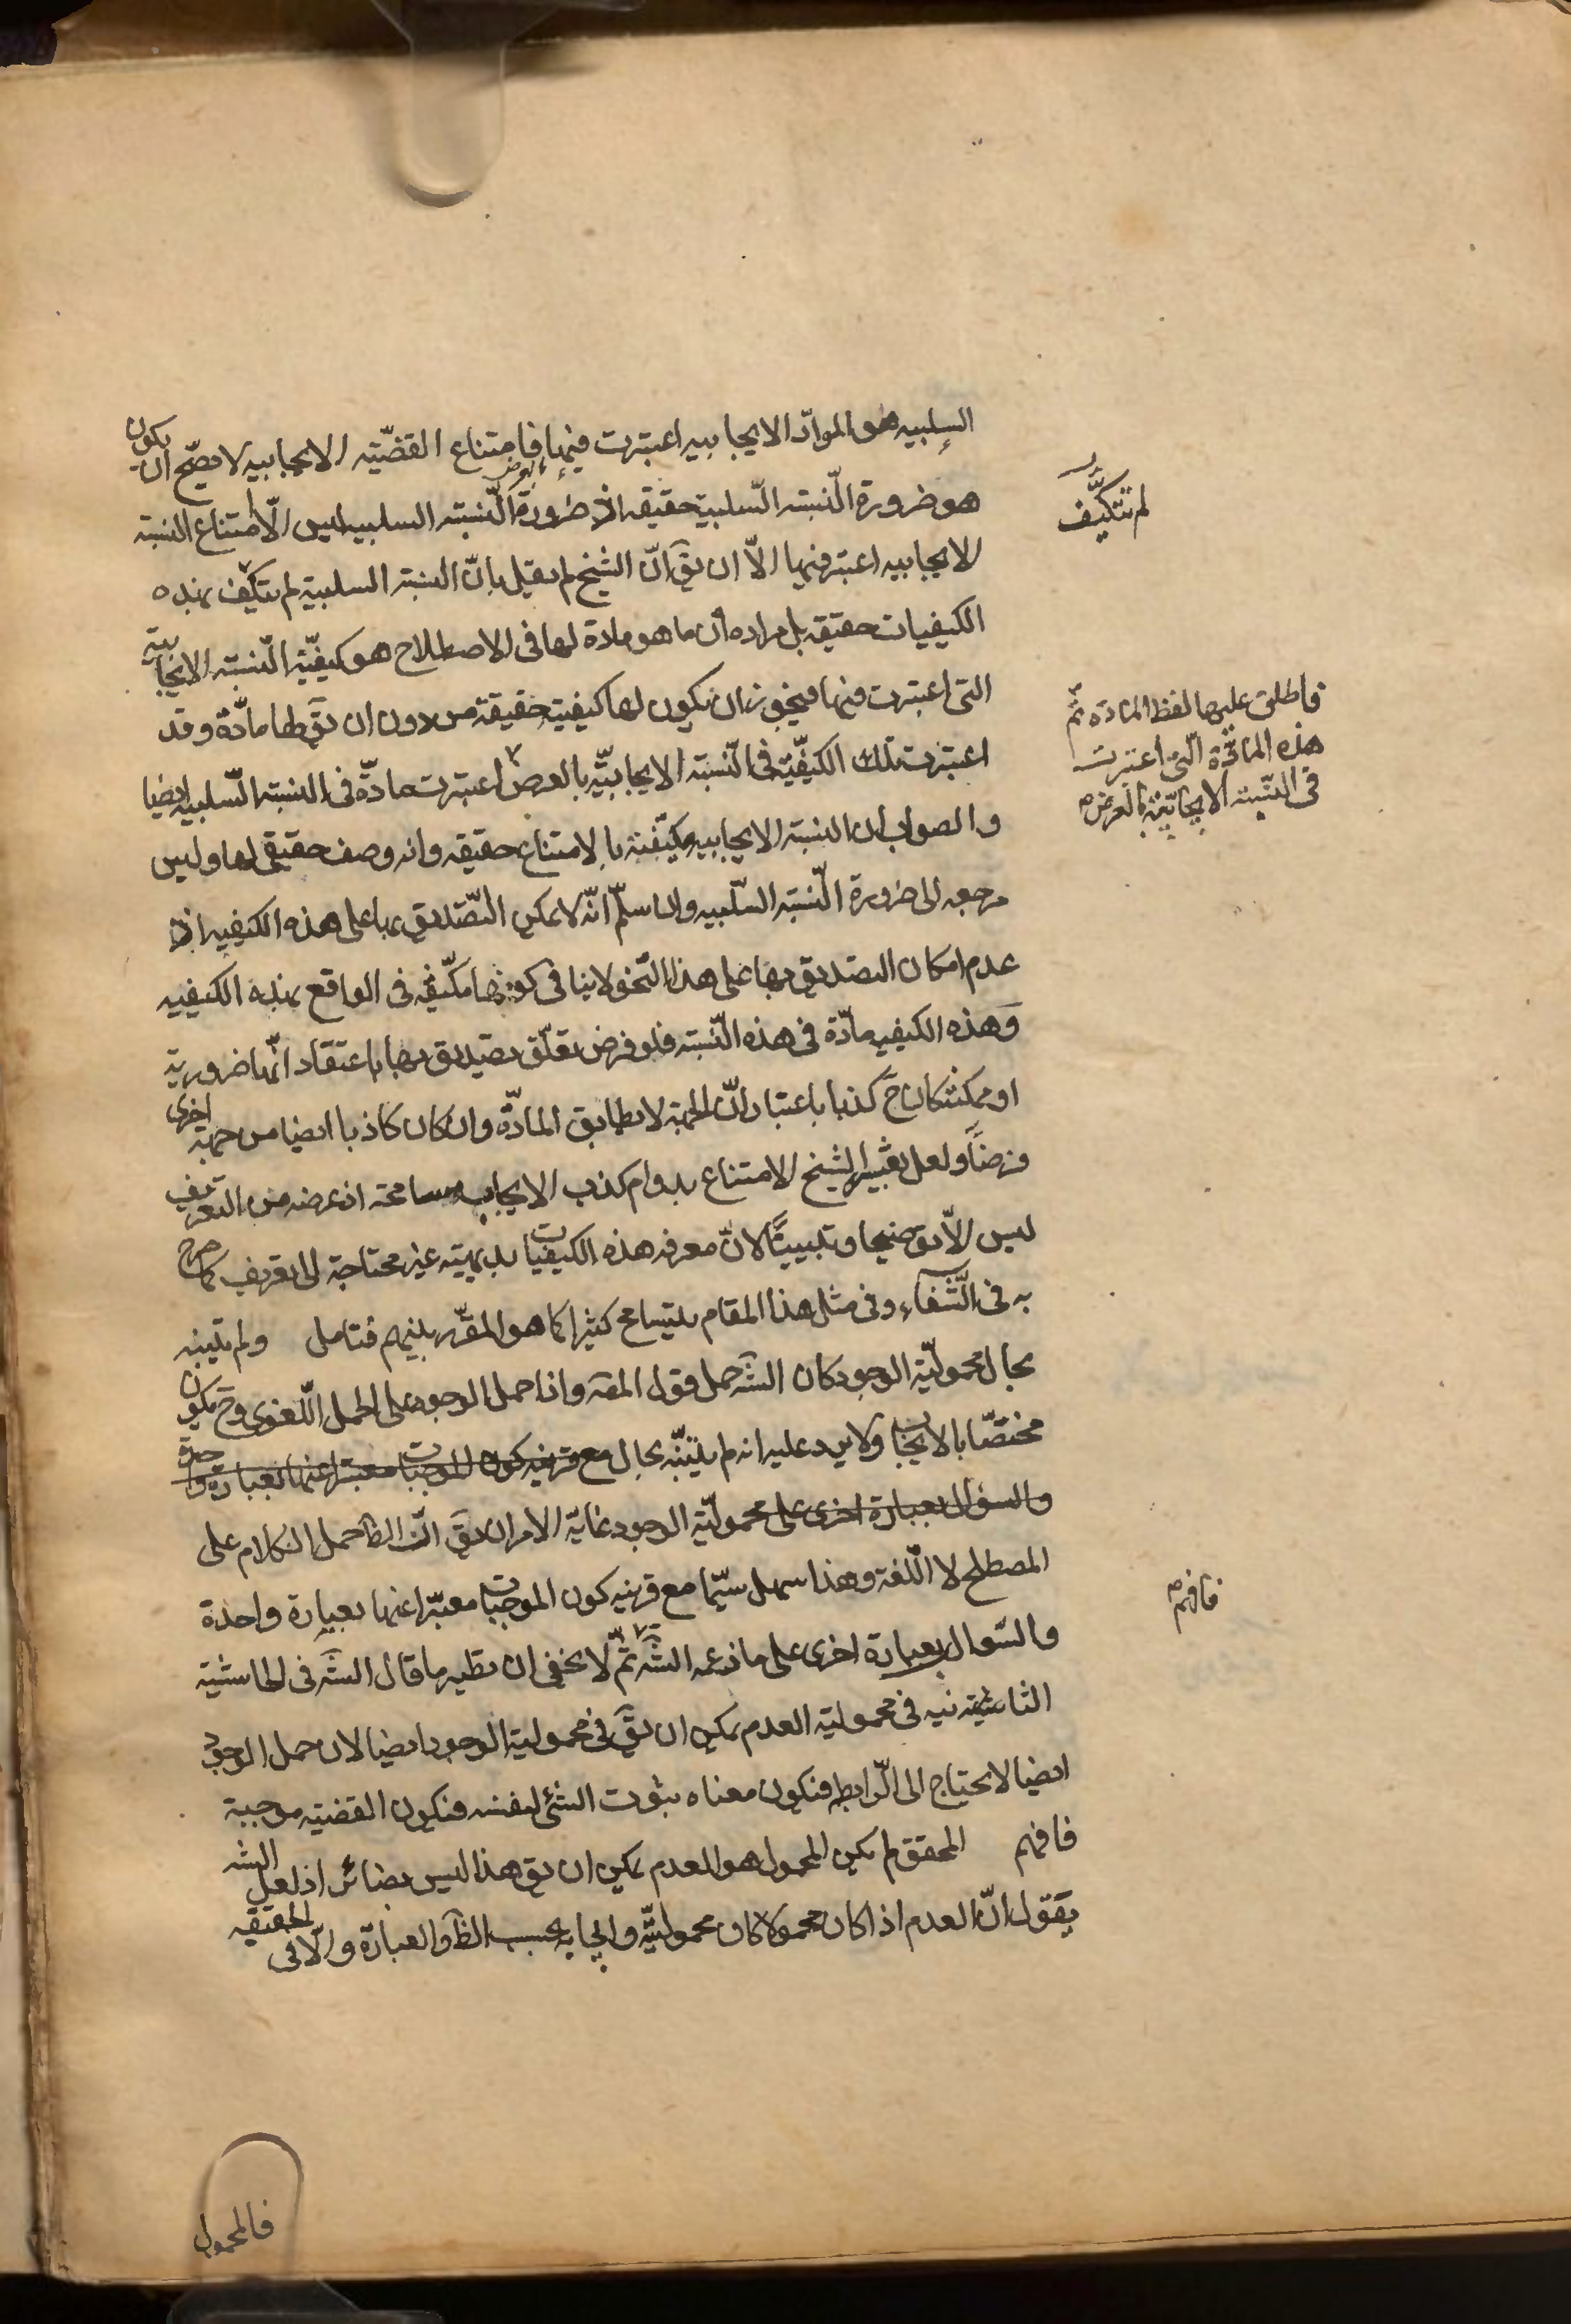 السلبيه هو الموادّ الايجابيه اعتبرت فيها فامتناع القضيّه الايجابيه لا يصحّ ان يكون
هو ضرورة النّسبته السّلبية حقيقه اذ ضرورة النّسبته السلبيه ليس الّا امتناع النسبته
الايجابيه اعتبر فيها الّا ان يقَ انّ الشيخ لم يقل بانّ النسبته السلبية لم تتكيّف بهذه
الكيفيات حقيقه بل مراده أن ما هو مادة لها فى الاصطلاح هو كيفيّة النسبته الايجابية
التى اعتبرت فيها فيجوز ان يكون لها كيفية حقيقة من دون ان يقَ لها مادّة وقد
اعتبرت تلك الكيفيّة فى النّسبته الايجابيّة بالعرض اعتبرت مادّة فى النسبته السّلبيه ايضا
والصواب ان النسبته الايجابيه مكيّفته بالامتناع حقيقه وانه وصف حقيقى لها وليس
مرجعه الى ضرورة النّسبته السّلبيه وانا سلّم انّه لا يمكن التّصديق بها على هذه الكيفيه اذ
عدم امكان التصديق بها على هذا النّحو لا ينافى كونها مكيّفة فى الواقع بهذه الكيفيه
وهذه الكيفيه مادّة فى هذه النّسبته فلو فرض تعلّق تصديق بها باعتقاد انّها ضرورية
او ممكنة كان حَ كذبا باعتبار انّ الجهة لا يطابق المادّة وان كان كاذبا ايضا من جهة اخرى
فرضًا ولعل تعبير الشيخ الامتناع بدوام كذب الايجاب مسامحة اذ غرضه من التعريف
ليس الّا توضيحا وتبيينًا لانّ معرفه هذه الكيفيات بديهيته غير محتاجة الى تعريف كما صرح
به فى الشّفاء وفى مثل هذا المقام يتسامح كثيرا كما هو المقرّر بينهم فتامل ولم يتبنه
بحال محموليّة الوجود كان الشَه حمل قول المصَه واذا حمل الوجود على الحمل اللّغوى وحَ يكون
مختصّا بالايجاب ولا يرد عليه انه لم يتنبّه بحال مع قرينه كون الموجبات معبّرا عنها بعبارة واحدة
والسؤال بعبارة اخرى على محموليّة الوجود غاية الامر ان يقَ انّ الظَ حمل الكلام على
المصطلح لا اللّغة وهذا سهل سيّما مع قرينه كون الموجبات معبّرا عنها بعبارة واحدة
والسّوال بعبارة اخرى على ما زعمه الشَه ثمّ لا يخفى ان نظير ما قال الشَه فى الحاشية
الثانية فى محمولية العدم يمكن ان يقَ فى محمولية الوجود ايضا لان حمل الوجود
ايضا لا يحتاج الى الرّابطه فيكون معناه ثبوت الشئ لنفسه فتكون القضيّه موجبة
فافهم المحقق لم يكن المحمول هو العدم يمكن ان يقَ هذا ليس بضائر اذ لعل الشه
يقول انّ العدم اذا كان محمولا كان محموليّة وايجابه بحسب الظَ والعبارة والّا فى الحقيقه
فالمحمول
لم تتكيَّف
فاطلق عليها لفظ المادّه ثمّ
هذه المادّة الّتى اعتبرت
فى النّسبته الايجابيّة بالعرض
فافهم